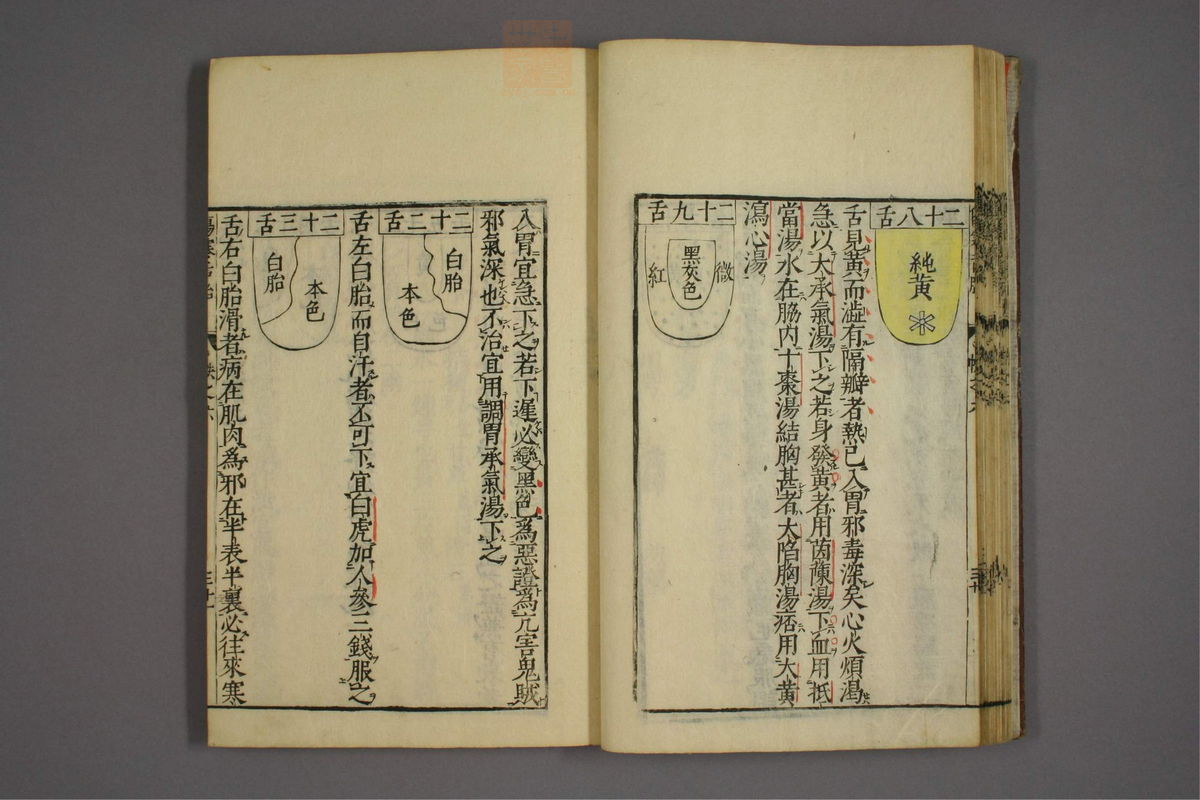 二十八舌
純黄
舌見黄而澁有隔瓣者熱已入胃邪毒深矣心火煩渴
急以大承氣湯下之若身發黄者用茵蔯湯下血用抵
當湯水在脇内十棗湯結胸甚者大陷胸湯痞用大黄
瀉心湯
二十九舌
微
黑灰色
紅
入胃宜急下之若下遲必變黑色爲惡證爲亢害鬼賊
邪氣深也不治宜用調胃承氣湯下之
二十二舌
白胎
本色
舌左白胎而自汗者不可下宜白虎加人參三錢服之
二十三舌
本色
白胎
舌右白胎滑者病在肌肉爲邪在半表半裏必往來寒